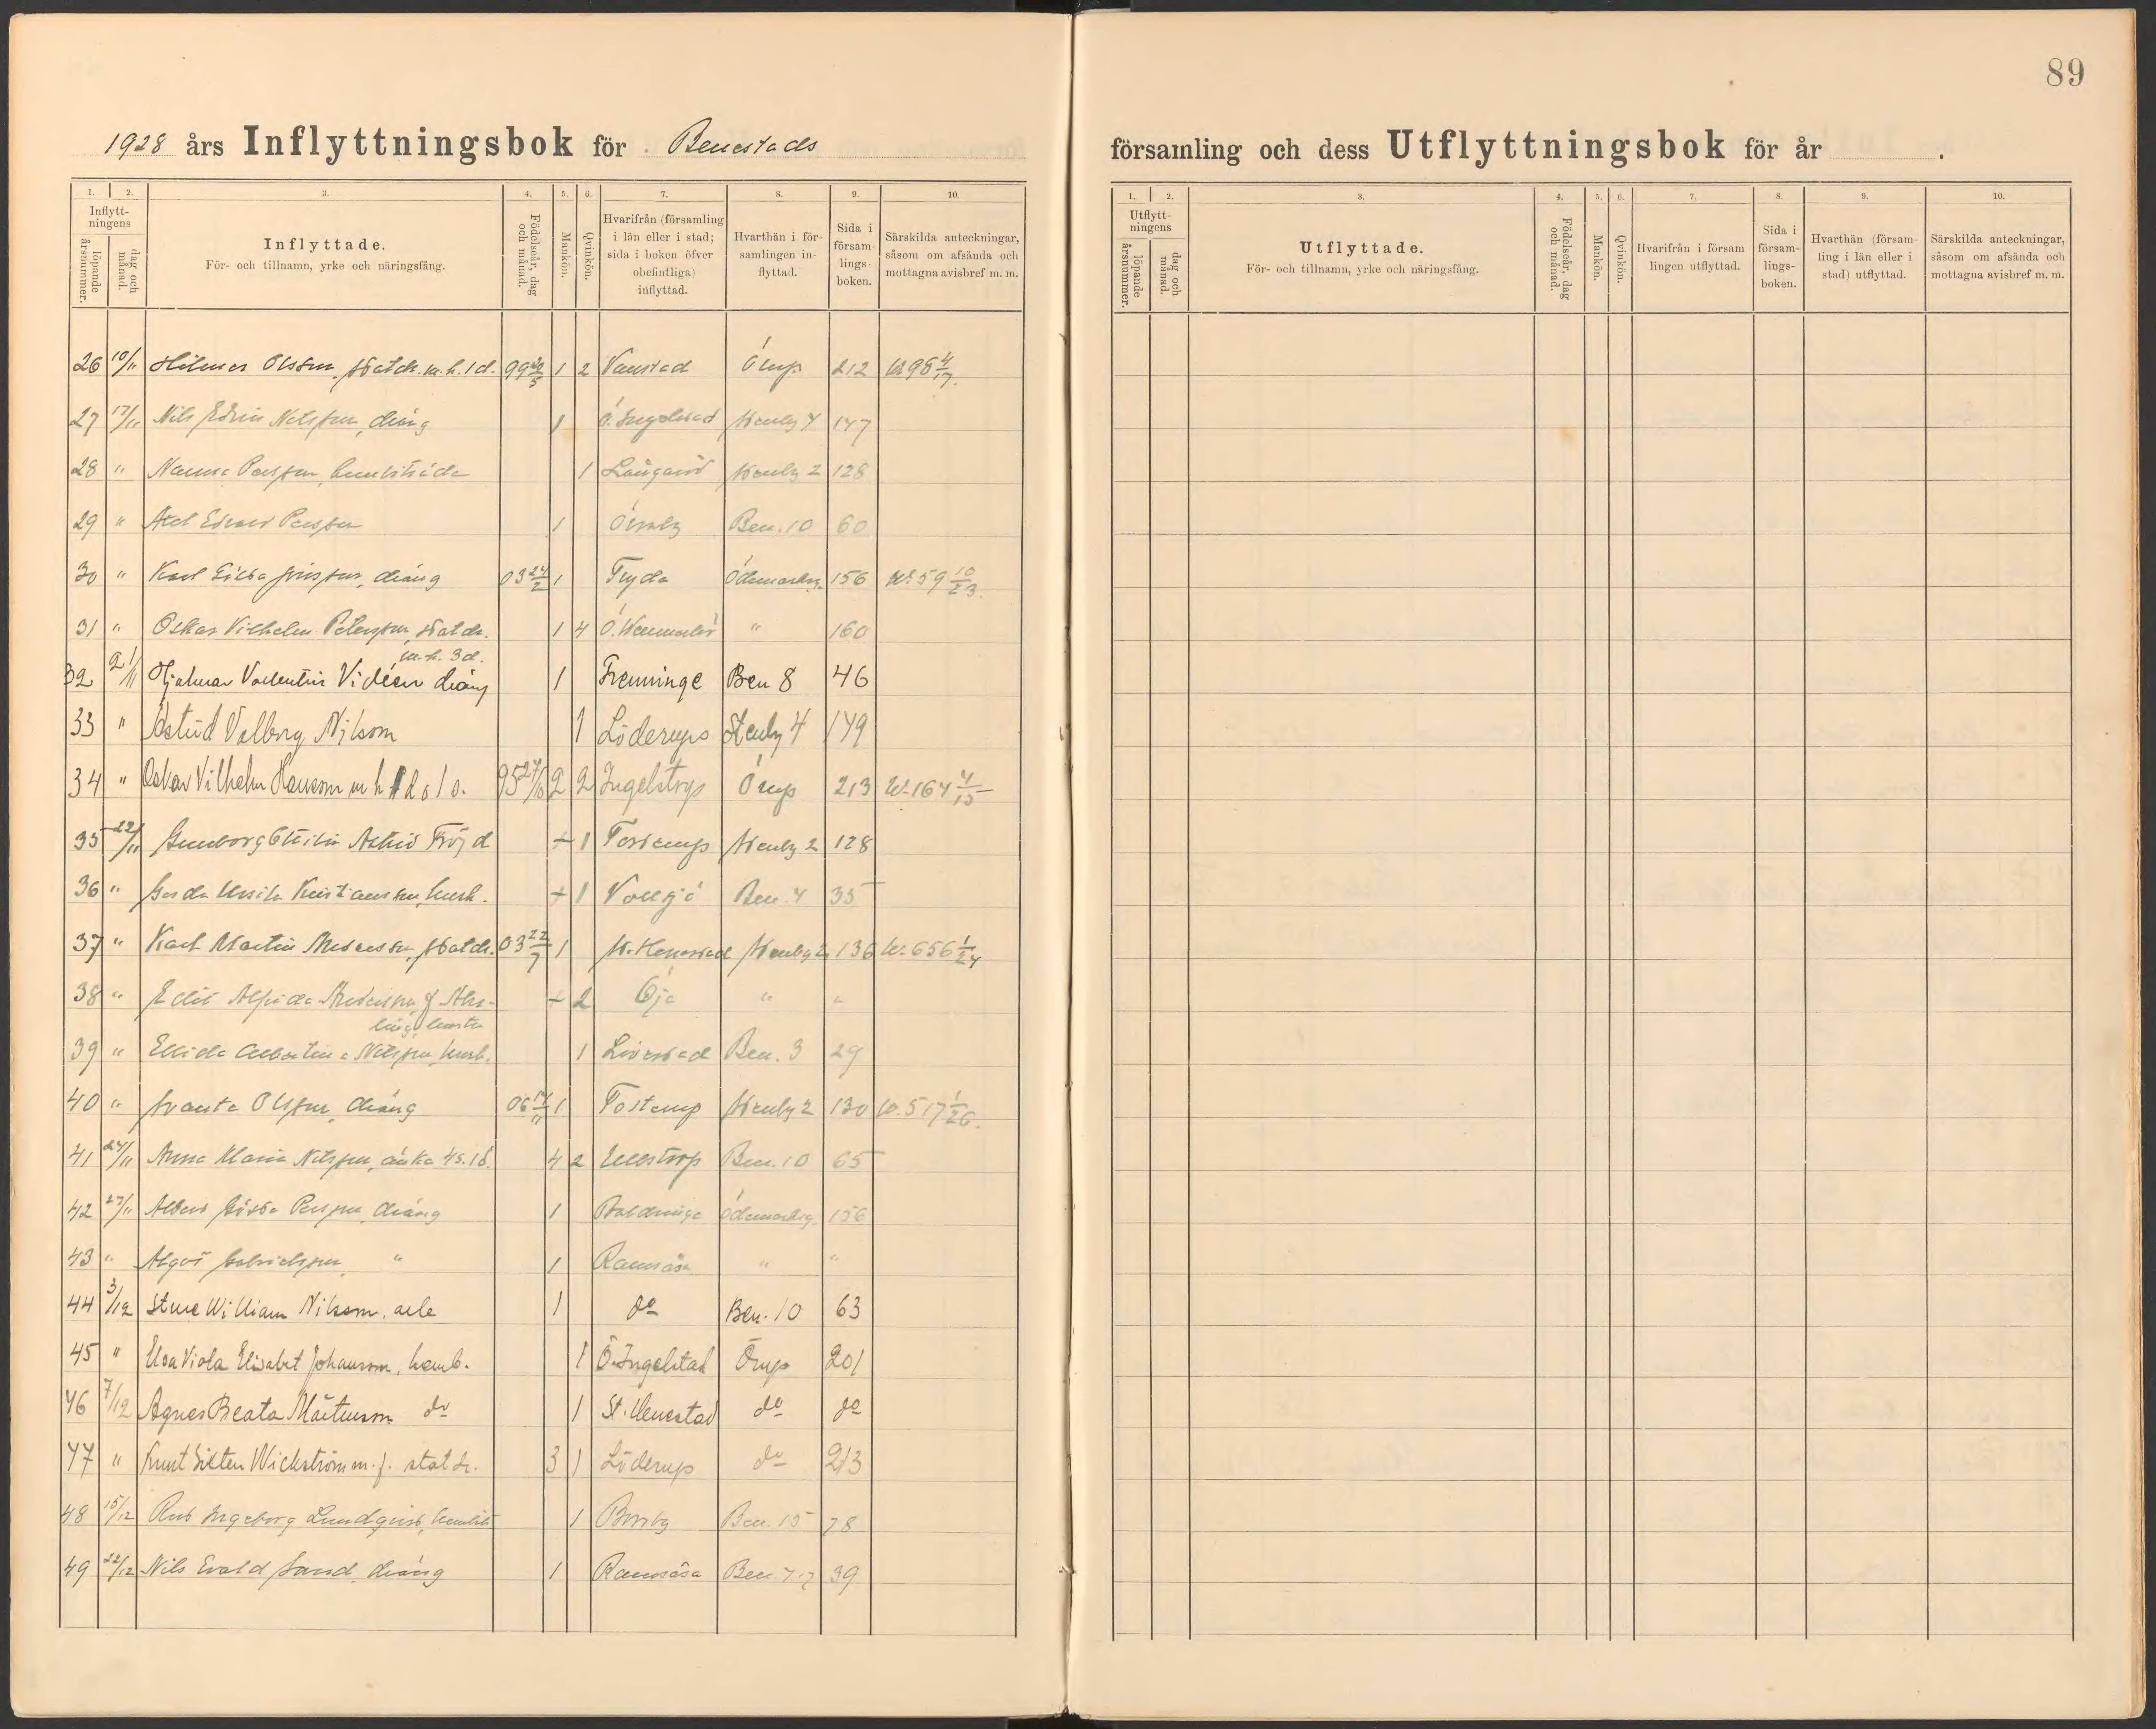 89
1928 års Inflyttningsbok för Benestads
församling och dess Utflyttningsbok för år .
1. 2. 3. 4. 5. 6. 7. 8. 9. 10.
Inflyttningens
löpande årsnummer.
dag och månad.
Inflyttade.
För- och tillnamn, yrke och näringsfång.
Födelseår, dag och månad.
Mankön.
Qvinkön.
Hvarifrån (församling
i län eller i stad;
sida i boken öfver
obefintliga)
inflyttad.
Hvarthän i för-
samlingen in-
flyttad.
Sida i
försam-
lings-
boken.
Särskilda anteckningar,
såsom om afsända och
mottagna avisbref m. m.
1. 2. 3. 4. 5. 6. 7. 8. 9. 10.
Utflytt-
ningens
löpande årsnummer.
dag och månad.
Utflyttade.
För- och tillnamn, yrke och näringsfång.
Födelseår, dag och månad.
Mankön.
Qvinkön.
Hvarifrån i försam
lingen utflyttad.
Sida i
försam-
lings-
boken.
Hvarthän (försam-
ling i län eller i
stad) utflyttad.
Särskilda anteckningar,
såsom om afsända och
mottagna avisbref m. m.
26 10/11 Hilmer Olsson, statdr. m. h. 1 d. 99 1 2 Vanstad Örup 212
27 17/11 Nils Edvin Nilsson, dräng 1 Ö. Ingelstad Stenby 4 147
28 " Nanna Persson, hembiträde 1 Långaröd Stenby 2 128
29 " Axel Edvard Persson 1 Örsby Ben. 10 60
30 " Karl Gösta Jönsson, dräng 03 24/2 1 Tryde Ödemarken 156 59 10/23.
31 " Oskar Vilhelm Petersson, statdr. 1 4 Ö. Vemmerlöv " 160
m. h. 3 d.
32 21/11 Hjalmar Valentin Vidéen dräng 1 Frenninge Ben 8 46
33 " Astrid Valborg Nilsson 1 Löderups Stenby 4 149
34 " Oskar Vilhelm Hansson m h 1 d o 1 s. 95 2 2 Ingelstorps Örup 213 164 4/15
35 22/11 Gunborg Astrid Fröjd + 1 Tosterups Stenby 2 128
36 " Gerda Kristiansson, hush. + 1 Vollsjö Ben. 4 35
37 " Karl Martin Andersson, statdr. 03 22/7 1 St. Herrestad Stenby 2 136 656 1/24
38 " Edit Alfrida Andersson f. + 2 Öja " "
39 " Albertina Nilsson, hush. 1 Lövestad Ben. 3 29
40 " Svante Olsson, dräng 06 14/11 1 Tosterup Stenby 2 130 517 1/26.
41 24/11 Anna Maria Nilsson, änka 4 s. 1 d. 4 2 Ullstorp Ben. 10 65
42 27/11 Albert Gösta Persson, dräng 1 Baldringe Ödemarken 156
43 " Algot Gabrielsson, " 1 Ramsåsa " "
44 3/12 Sture William Nilsson, 1 do Ben. 10 63
45 " Elsa Viola Elisabet Johansson, hemb. 1 Ö. Ingelstad Örup 201
46 7/12 Agnes Beata Mårtensson do 1 St. Herrestad do do
47 " Knut Sixten Wickström m. f. statdr. 3 1 Löderup do 213
48 15/12 Rut Ingeborg Lundquist, 1 Borrby Ben. 15 78
49 22/12 Nils Evald Sand, dräng 1 Ramsåsa Ben. 39